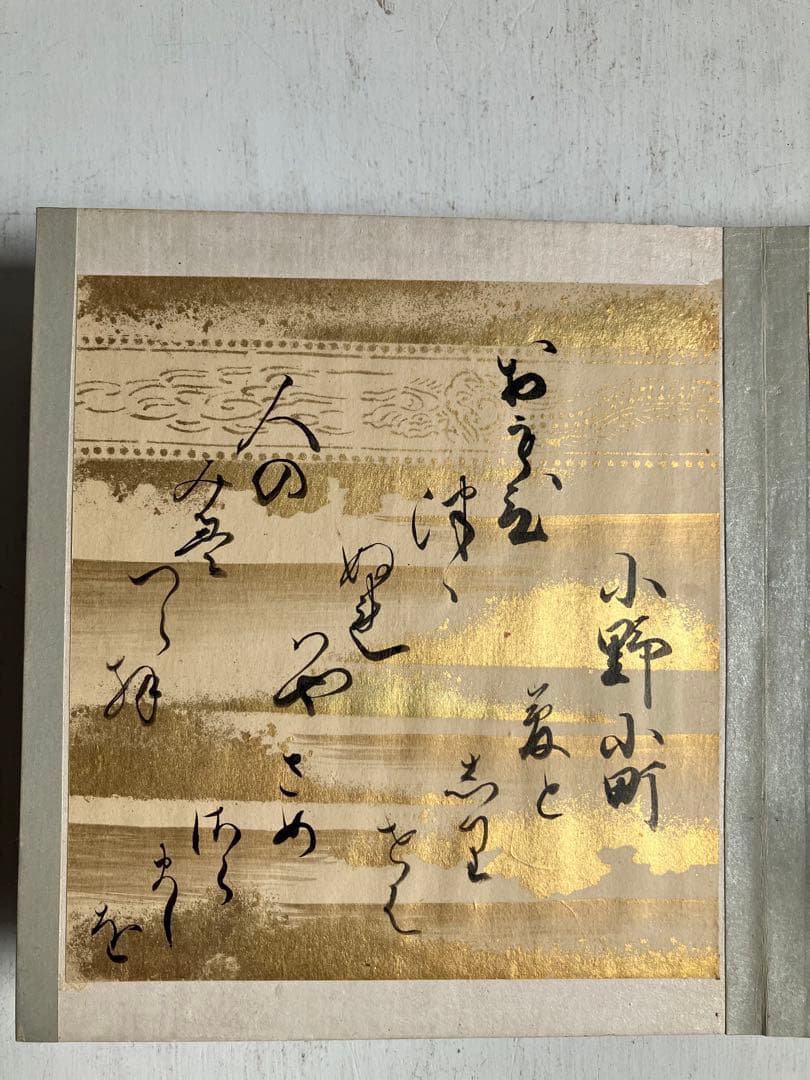 小野小町
おもひ
津ゝ
ぬ連
はや
人の
みえ
つら
む
夢と
志里
せは
さめ
さら
まし
を